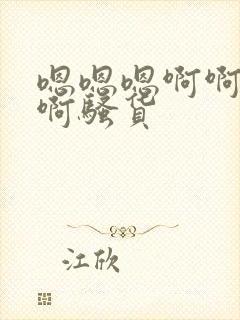 嗯嗯嗯啊啊
啊骚货
江欣